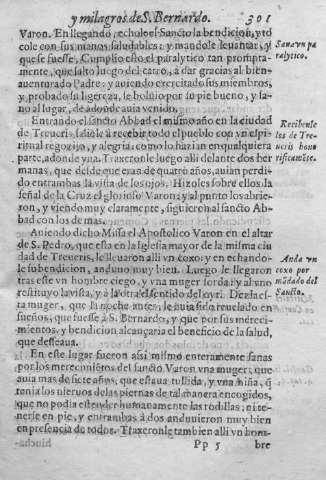 y milagros de S. Bernardo. 301
Varon. En llegando, echole el Sancto la bendicion, y to
cole con sus manos saludables: y mandole leuantar, y
que se fuesse. Cumplio esto el paralytico tan prompta-
mente, que salto luego del carro, a dar gracias al bien-
auenturado Padre: y auiendo exercitado sus miembros,
y probado su ligereza, se boluio por su pie bueno, y sa-
no al lugar, de adonde auia venido.
Sana vn pa
ralytico.
Entrando el sancto Abbad el mismo año en la ciudad
de Treueris, saliole à recebir todo el pueblo con vn espi-
ritual regozijo, y alegria: como lo hazian en qualquiera
parte, adonde yua. Traxeronle luego alli delante dos her
manas, que desde que eras de quatro años, auian perdi-
do entrambas la vista de los ojos. Hizo les sobre ellos la
señal de la Cruz el glorioso Varon: y al punto los abrie-
ron, y viendo muy claramente, siguieron al sancto Ab-
bad con los demas.
Recibenle
los de Tre-
ueris hono
rificamẽte.
Auiendo dicho Missa el Apostolico Varon en el altar
de S. Pedro, que esta en la Iglesia mayor de la misma ciu
dad de Treueris, le lleuaron alli vn coxo: y en echando-
le su bendicion, anduuo muy bien. Luego le llegaron
tras este vn hombre ciego, y vna muger sorda: y al vno
restituyo la vista, y à la otra el sentido del oyr. Dezia es-
ta muger, que la noche antes, le auia sido reuelado en
sueños, que fuesse à S. Bernardo, y que por sus mereci-
mientos, y bendicion alcançaria el beneficio de la salud,
que desseaua.
Anda vn
coxo por
mãdado del
Sancto.
En este lugar fueron assi mismo enteramente sanas
por los merecimiẽtos del sancto Varon vna muger; que
auia mas de siete años, que estaua tullida, y vna niña, q̃
tenia los nieruos de las piernas de tal manera encogidos,
que no podia estender humanamente las rodillas; ni te-
nerse en pie, y entrambas à dos anduuieron muy bien
en presencia de todos. Traxeronle tambien alli vn hom-
Pp 5 bre